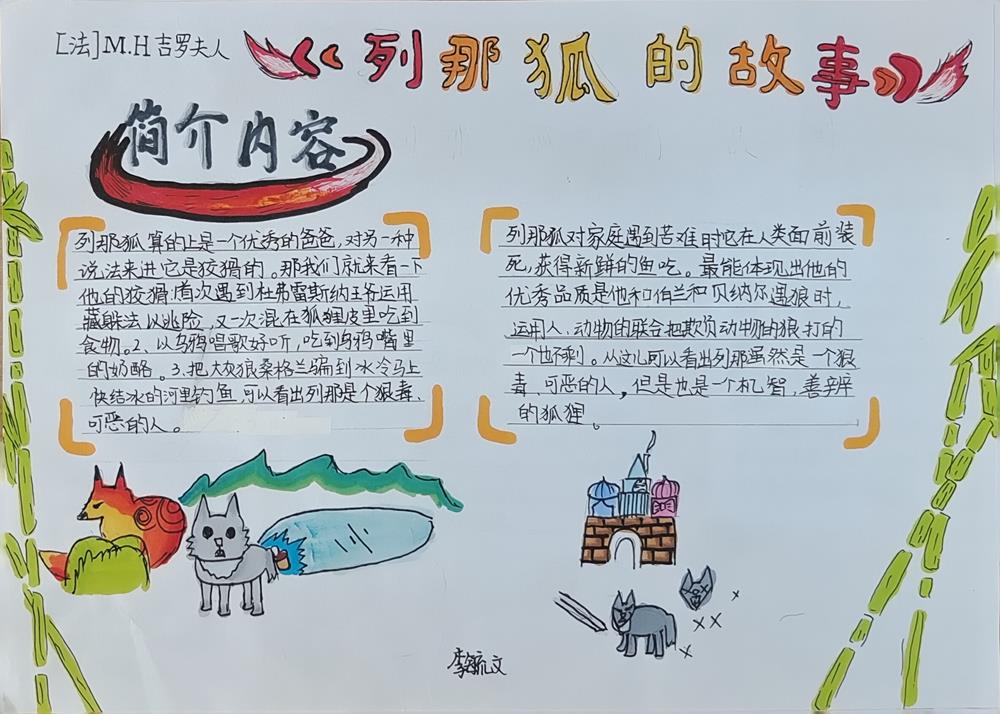 [法]M.H吉罗夫人
列那狐的故事
简介内容
列那狐算的上是一个优秀的爸爸,对另一种
说法来进它是狡猾的。那我们就来看一下
他的狡猾:首次遇到杜弗雷斯纳王爷运用
藏躲法以逃险,又一次混在狐狸皮里吃到
食物。2、以乌鸦唱歌好听,吃到乌鸦嘴里
的奶酪。3、把大灰狼桑格兰骗到水冷马上
快结冰的河里钓鱼,可以看出列那是个狠毒、
可恶的人。
列那狐对家庭遇到苦难时它在人类面前装
死,获得新鲜的鱼吃。最能体现出他的
优秀品质是他和伯兰和贝纳尔遇狼时,
运用人、动物的联合把欺负动物的狼打的
一个也不剩。从这儿可以看出列那虽然是一个狠
毒、可恶的人,但是也是一个机智,善辩
的狐狸。
李毓文